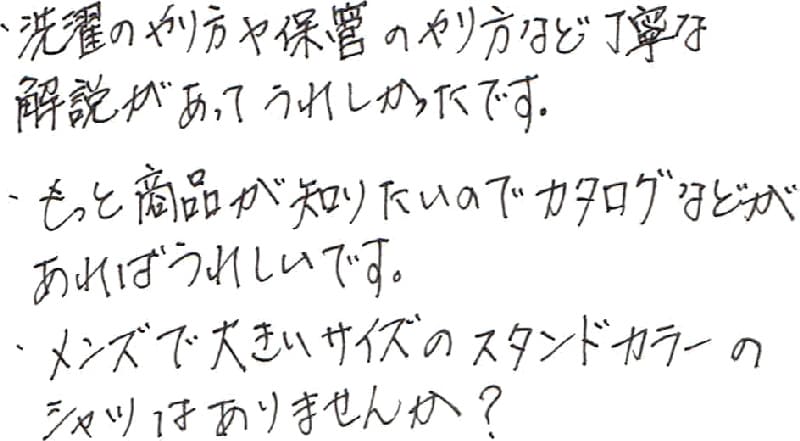 ・洗濯のやり方や保管のやり方など丁寧な
解説があってうれしかったです。
・もっと商品が知りたいのでカタログなどが
あればうれしいです。
・メンズで大きいサイズのスタンドカラーの
シャツはありませんか？